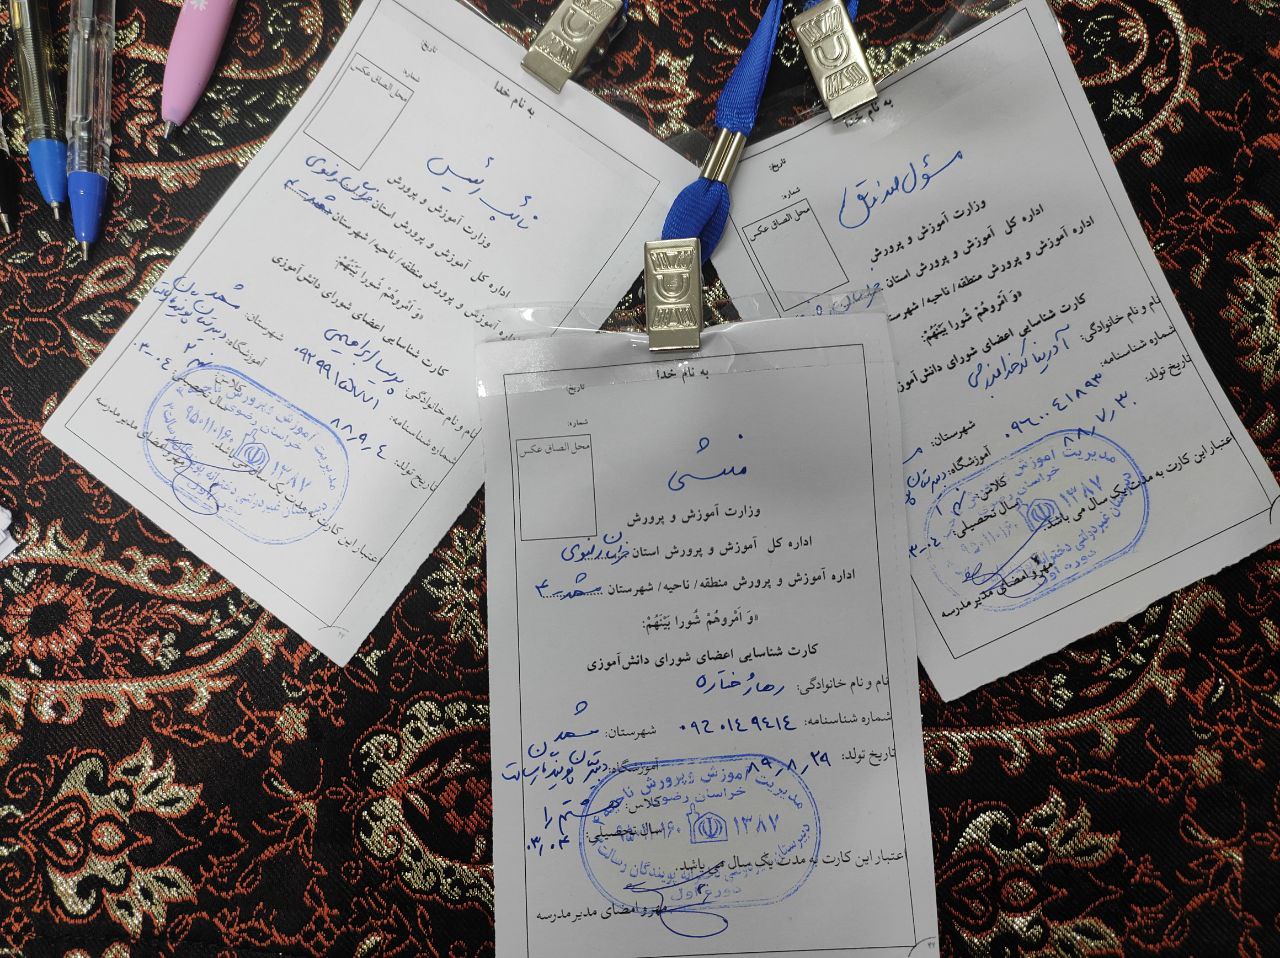 به نام خدا
تاریخ:
شماره:
محل الصاق عکس
نائب رئیس
وزارت آموزش و پرورش
اداره کل آموزش و پرورش استان خراسان رضوی
اداره آموزش و پرورش منطقه/ ناحیه/ شهرستان مشهد - ۴
«وَ اَمْروهُمْ شُورا بَیْنَهُمْ:
کارت شناسایی اعضای شورای دانش‌آموزی
نام و نام خانوادگی: پریسا ابراهیمی
شماره شناسنامه: شهرستان: مشهد
تاریخ تولد: ۸۸،۹،۴ آموزشگاه: دبیرستان
کلاس: نهم ۲
سال تحصیلی: ۰۳-۰۴
اعتبار این کارت به مدت یک سال می باشد.
مهر و امضای مدیر مدرسه
به نام خدا
تاریخ:
شماره:
محل الصاق عکس
مسؤل صندوق
وزارت آموزش و پرورش
اداره کل آموزش و پرورش استان
اداره آموزش و پرورش منطقه/ ناحیه/ شهرستان
«وَ اَمْروهُمْ شُورا بَیْنَهُمْ:
کارت شناسایی اعضای شورای دانش‌آموزی
نام و نام خانوادگی: آدرینا
شماره شناسنامه: ۰۹۶۰۰۴۱۸۹۳ شهرستان:
تاریخ تولد: ۸۸،۷،۳۰ آموزشگاه: دبیرستان
کلاس: نهم ۱
سال تحصیلی: ۰۳-۰۴
اعتبار این کارت به مدت یک سال می باشد.
مهر و امضای مدیر مدرسه
به نام خدا
تاریخ:
شماره:
محل الصاق عکس
منشی
وزارت آموزش و پرورش
اداره کل آموزش و پرورش استان خراسان رضوی
اداره آموزش و پرورش منطقه/ ناحیه/ شهرستان مشهد - ۴
«وَ اَمْروهُمْ شُورا بَیْنَهُمْ:
کارت شناسایی اعضای شورای دانش‌آموزی
نام و نام خانوادگی:
شماره شناسنامه: ۰۹۲۰۱۴۹۴۱۴ شهرستان: مشهد
تاریخ تولد: ۸۹،۸،۲۹ آموزشگاه: دبیرستان پویندگان رسالت
کلاس: هشتم ۱
سال تحصیلی: ۰۳،۰۴
اعتبار این کارت به مدت یک سال می باشد.
مهر و امضای مدیر مدرسه
مدیریت آموزش و پرورش ناحیه ۴
خراسان رضوی
۱۳۸۷
دوره اول